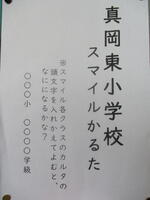 真岡東小学校
スマイルかるた
※スマイル各クラスのカルタの
頭文字を入れかえてよむと、
なにになるかな？
○○○小　○○○○学級